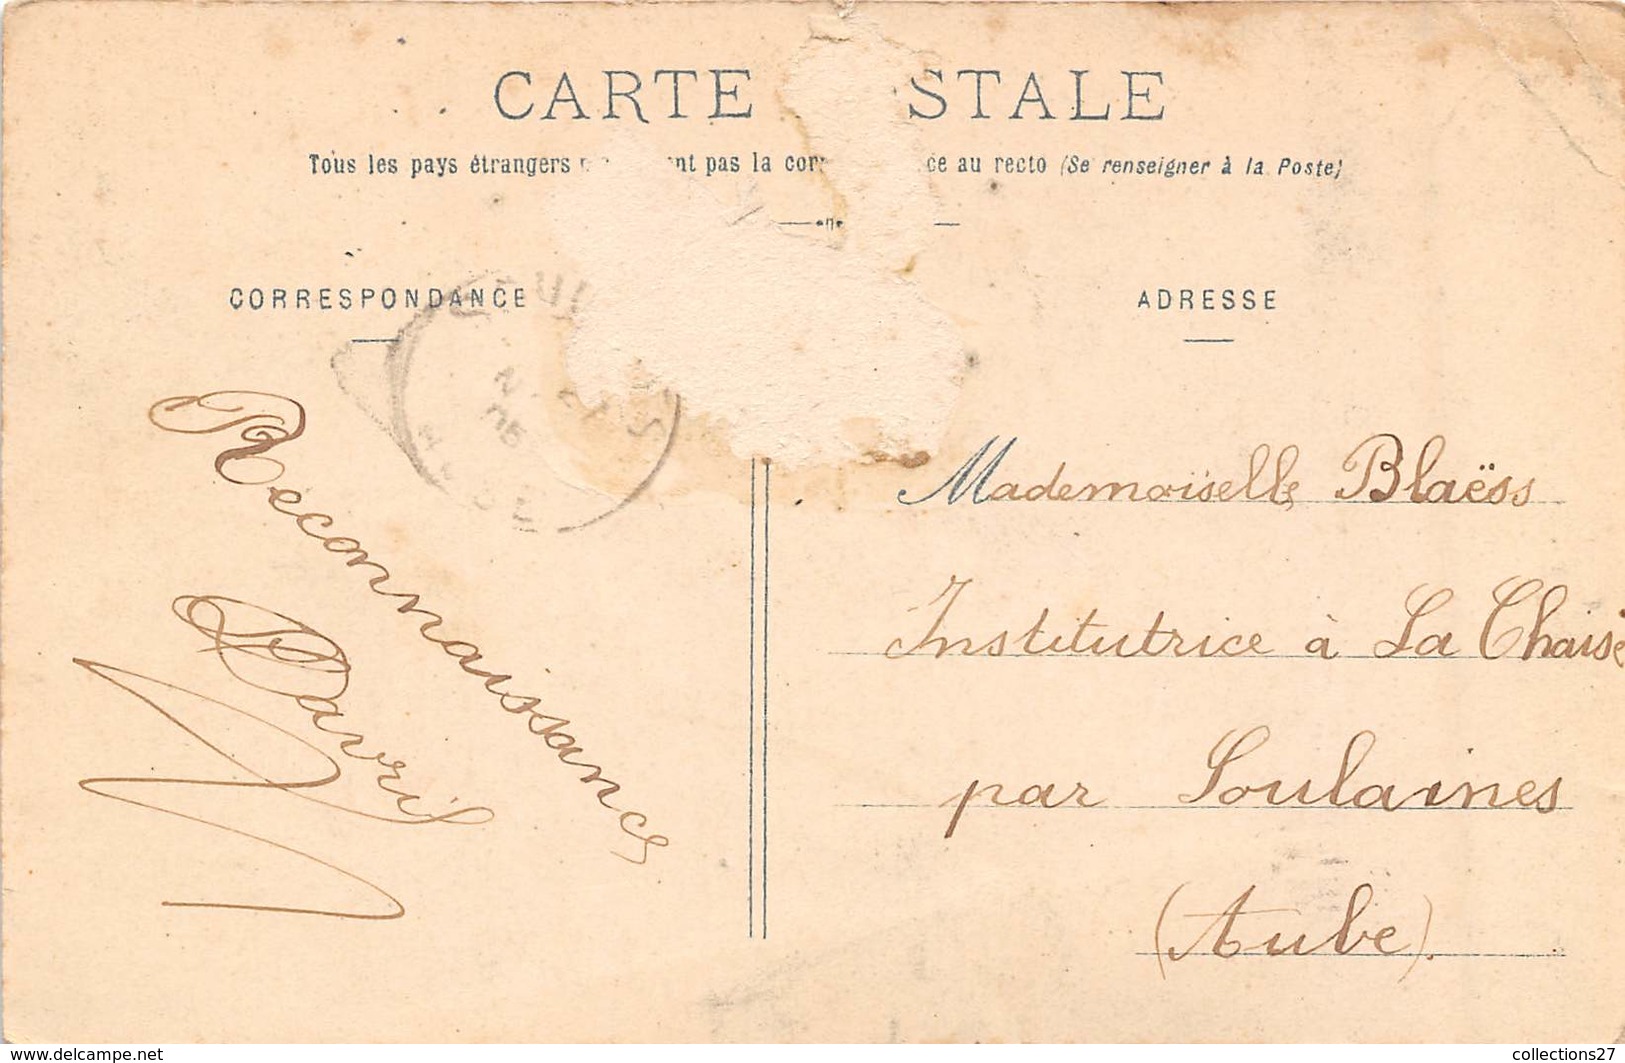 CARTE STALE
Tous les pays étrangers nt pas la cor ce au recto (Se renseigner à la Poste)
CORRESPONDANCE
ADRESSE
Reconnaissance
Davril
Mademoiselle Blaëss
Institutrice à La Chaise
par Soulaines
(Aube).
www.delcampe.net
collections27